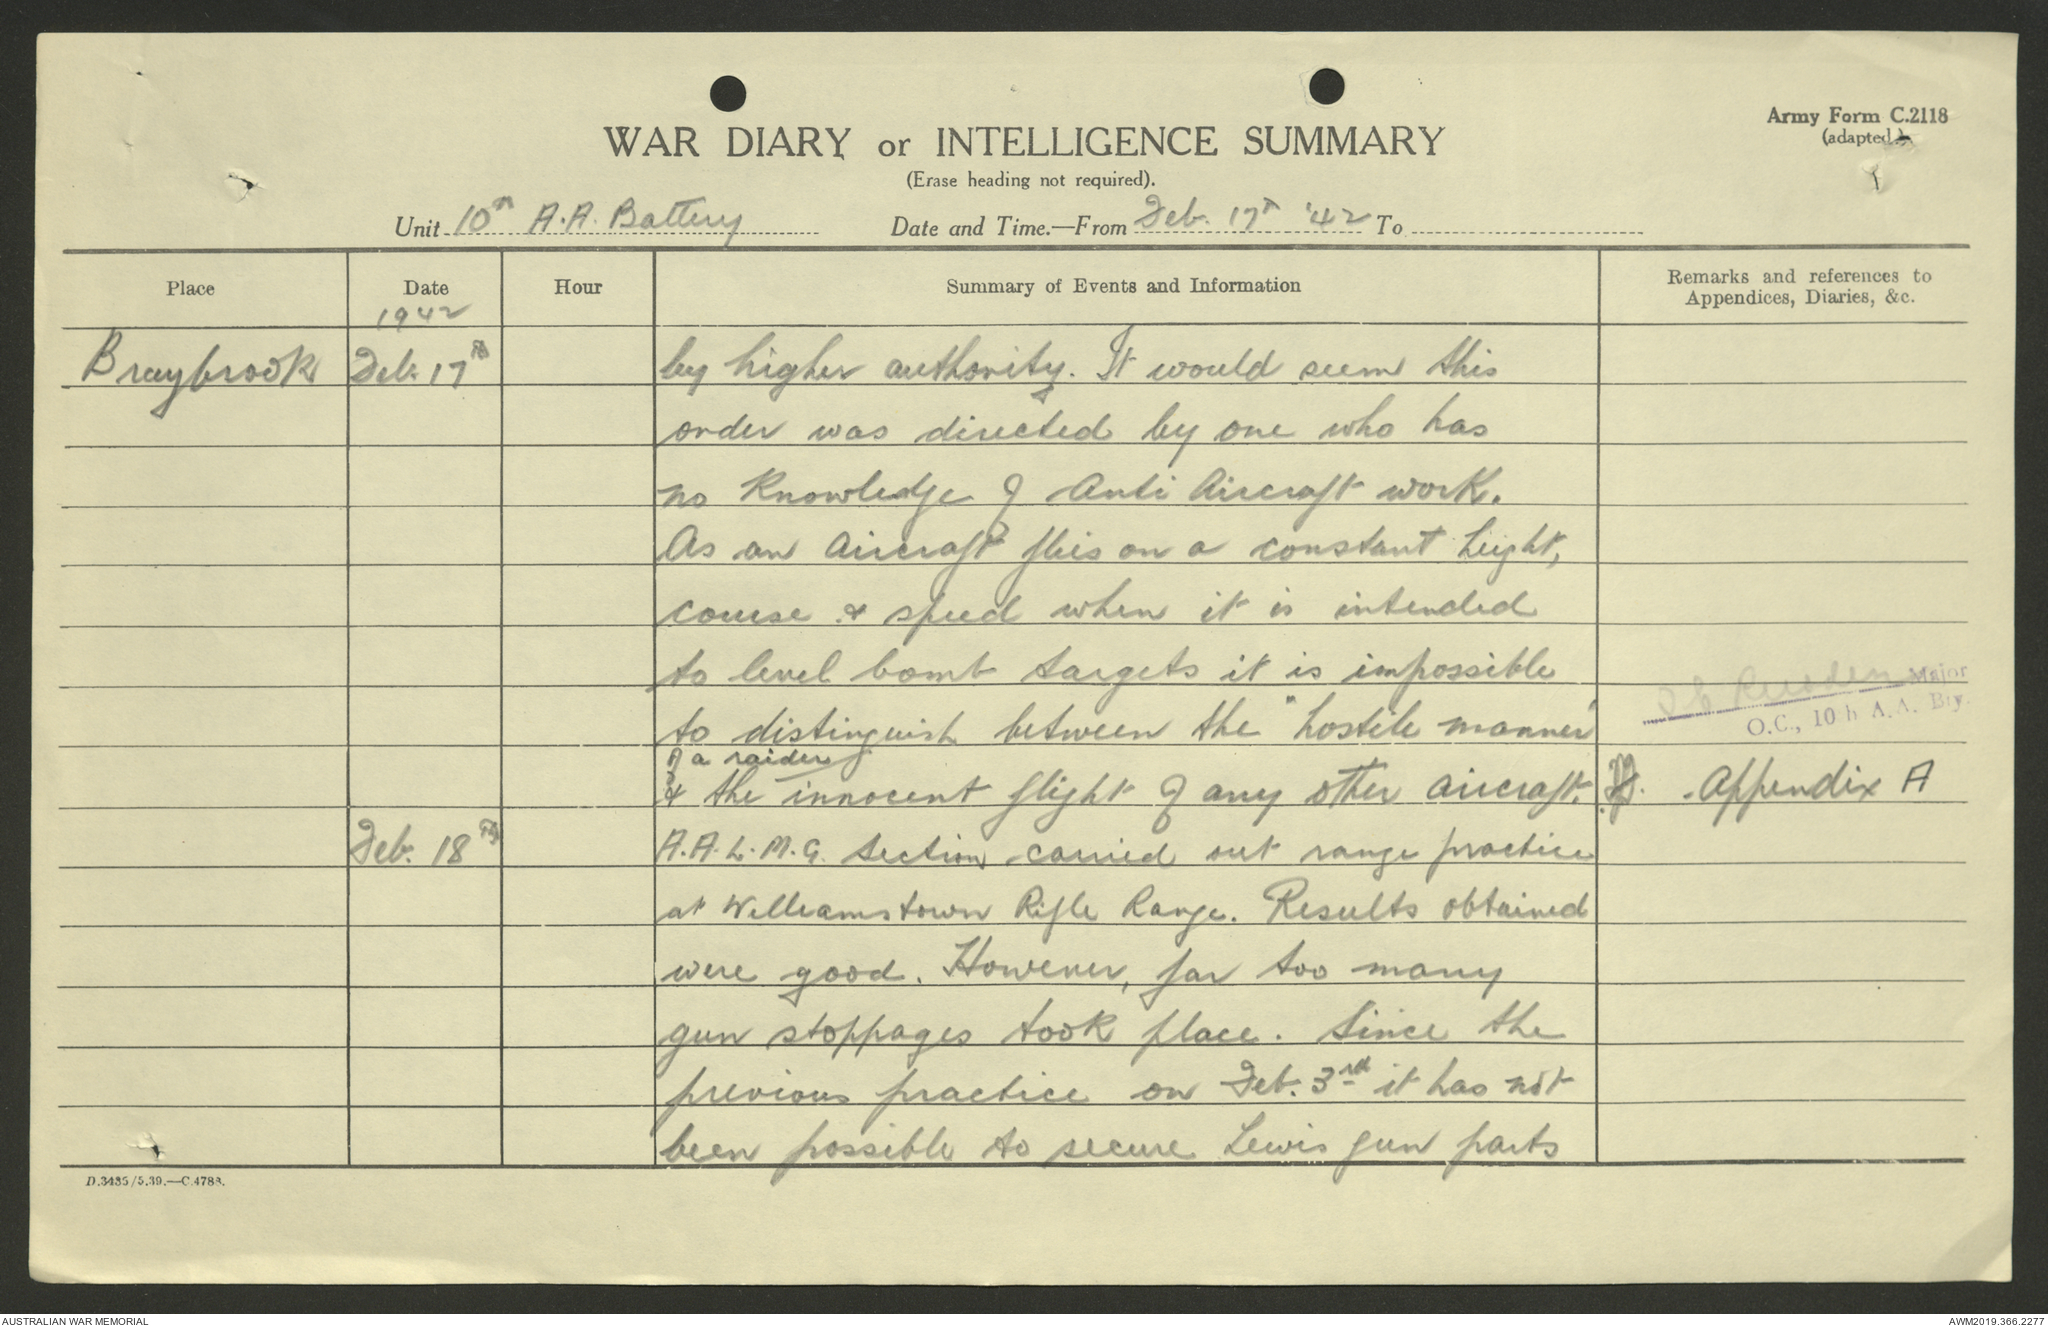 Army Form C.2118
(adapted.)
WAR DIARY or INTELLIGENCE SUMMARY
(Erase heading not required).
Unit 10th A.A. Battery Date and Time.—From Feb. 17th '42 To
Place Date Hour Summary of Events and Information Remarks and references to Appendices, Diaries, &c.
1942
Braybrook Feb. 17th by higher authority. It would seem this
order was directed by one who has
no knowledge of Anti Aircraft work.
As an Aircraft flies on a constant height,
course & speed when it is intended
to level bomb targets it is impossible
Major
to distinguish between the "hostile manner"
O.C., 10th A.A. Bty.
of a raider
& the innocent flight of any other aircraft. Appendix A
Feb. 18th A.A.L.M.G. Section carried out range practice
at Williamstown Rifle Range. Results obtained
were good. However, far too many
gun stoppages took place. Since the
previous practice on Feb. 3rd it has not
been possible to secure Lewis gun parts
D.3435/5.39.—C.4788.
AUSTRALIAN WAR MEMORIAL AWM2019.366.2277